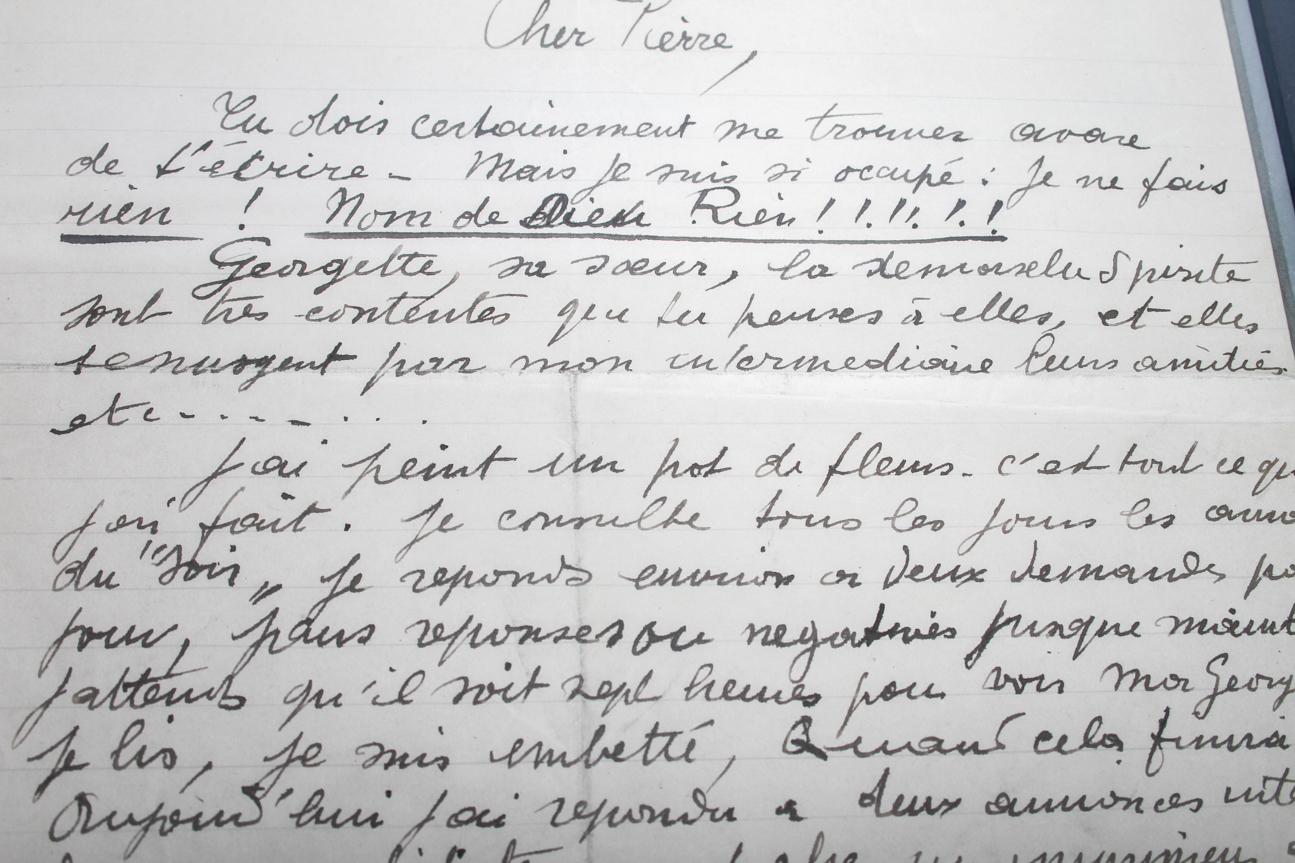 Cher Pierre,
Tu dois certainement me trouver avare
de t'écrire - Mais je suis si occupé : Je ne fais
rien ! Nom de Dieu Rien ! ! !! ! !
Georgette, sa sœur, la demoiselle Spirite
sont très contentes que tu penses à elles, et elles
par mon intermediaire leurs amitiés
etc - - - - . . .
J'ai peint un pot de fleurs - c'est tout ce qu
j'ai fait . Je consulte tous les jours les anno
du "Soir" Je reponds environ a deux demandes pa
jour, reponses ou negatives jusque maint
J'attends qu'il soit sept heures pour voir ma Georg
Je lis, je suis embetté, Quand cela finira
Aujourd'hui j'ai repondu a deux annonces inté